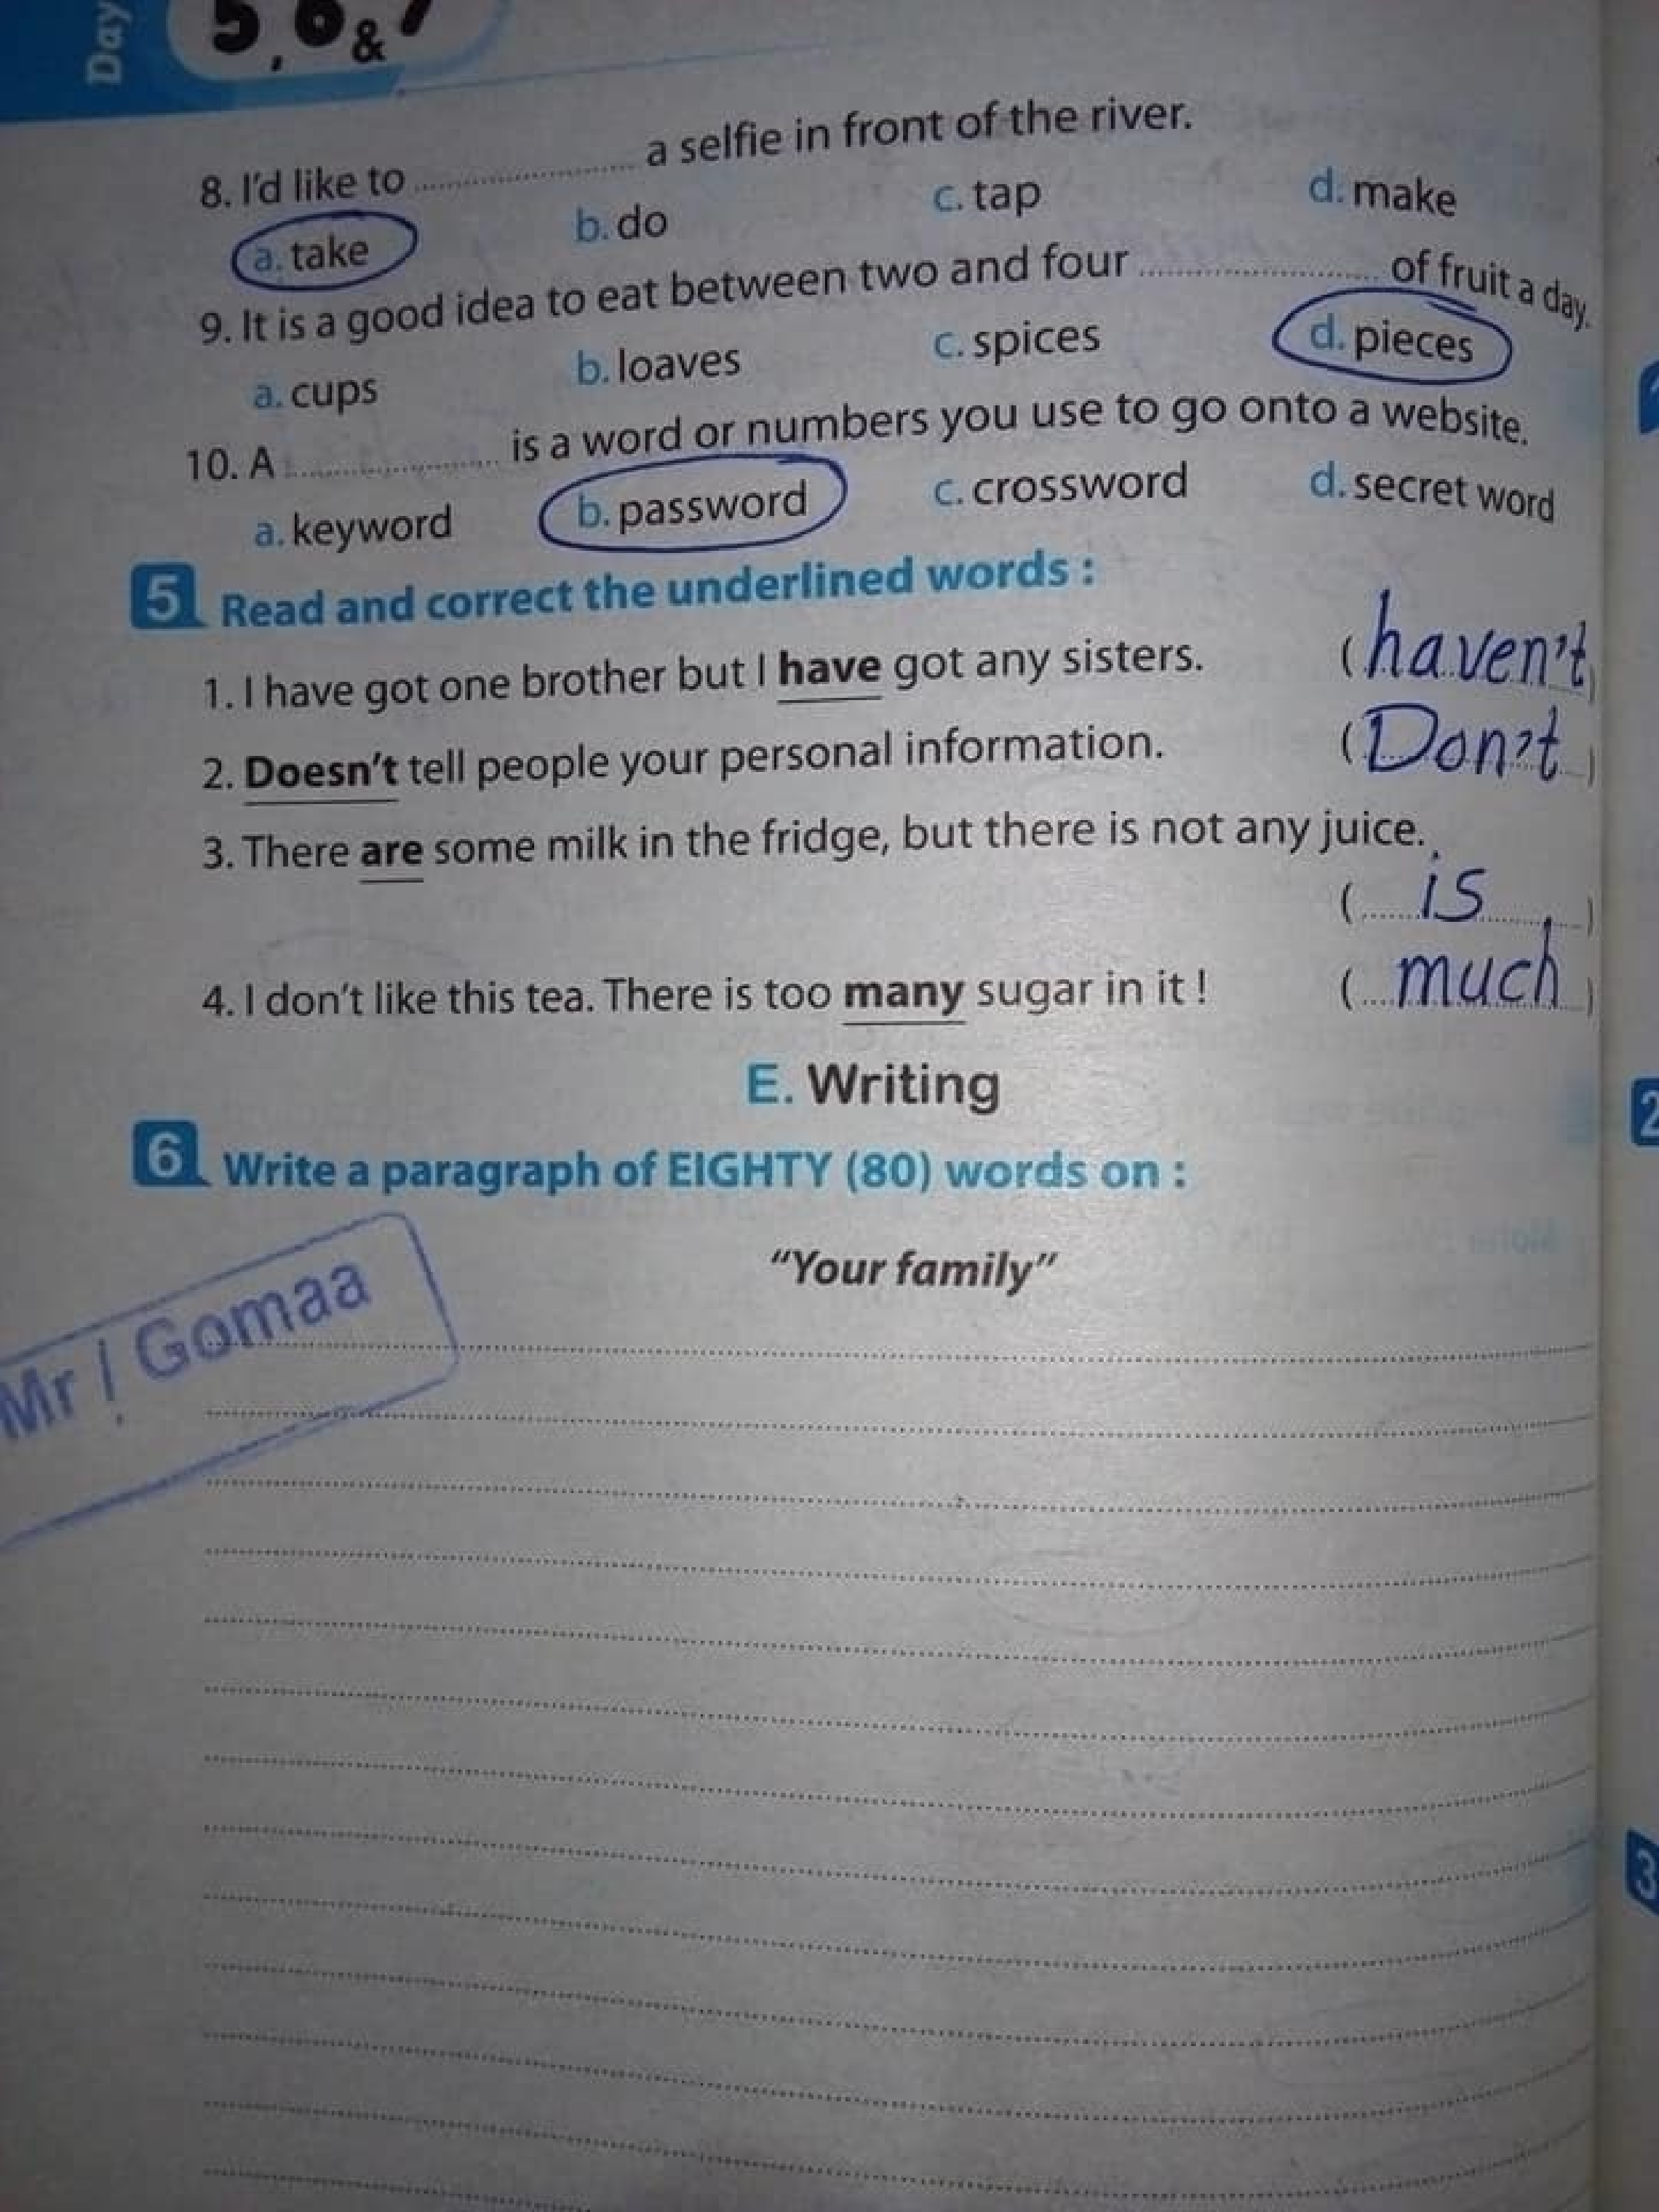 Day 5, 6 & 7
8. I'd like to .................... a selfie in front of the river.
a. take b. do c. tap d. make
9. It is a good idea to eat between two and four .................... of fruit a day.
a. cups b. loaves c. spices d. pieces
10. A .................... is a word or numbers you use to go onto a website.
a. keyword b. password c. crossword d. secret word
5 Read and correct the underlined words :
1. I have got one brother but I have got any sisters. (haven't)
2. Doesn't tell people your personal information. (Don't)
3. There are some milk in the fridge, but there is not any juice.
(is)
4. I don't like this tea. There is too many sugar in it ! (much)
E. Writing
2
6 Write a paragraph of EIGHTY (80) words on :
"Your family"
Mr / Gomaa
3